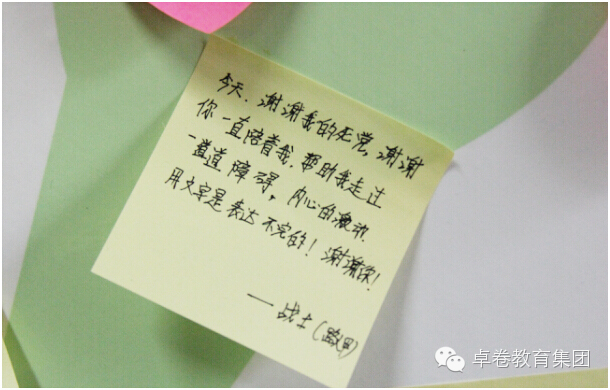 今天,谢谢我的死党,谢谢
你一直陪着我.帮助我走过
一道道障碍。内心的激动.
用文字是表达不完的!谢谢你!
——战士(
卓卷教育集团